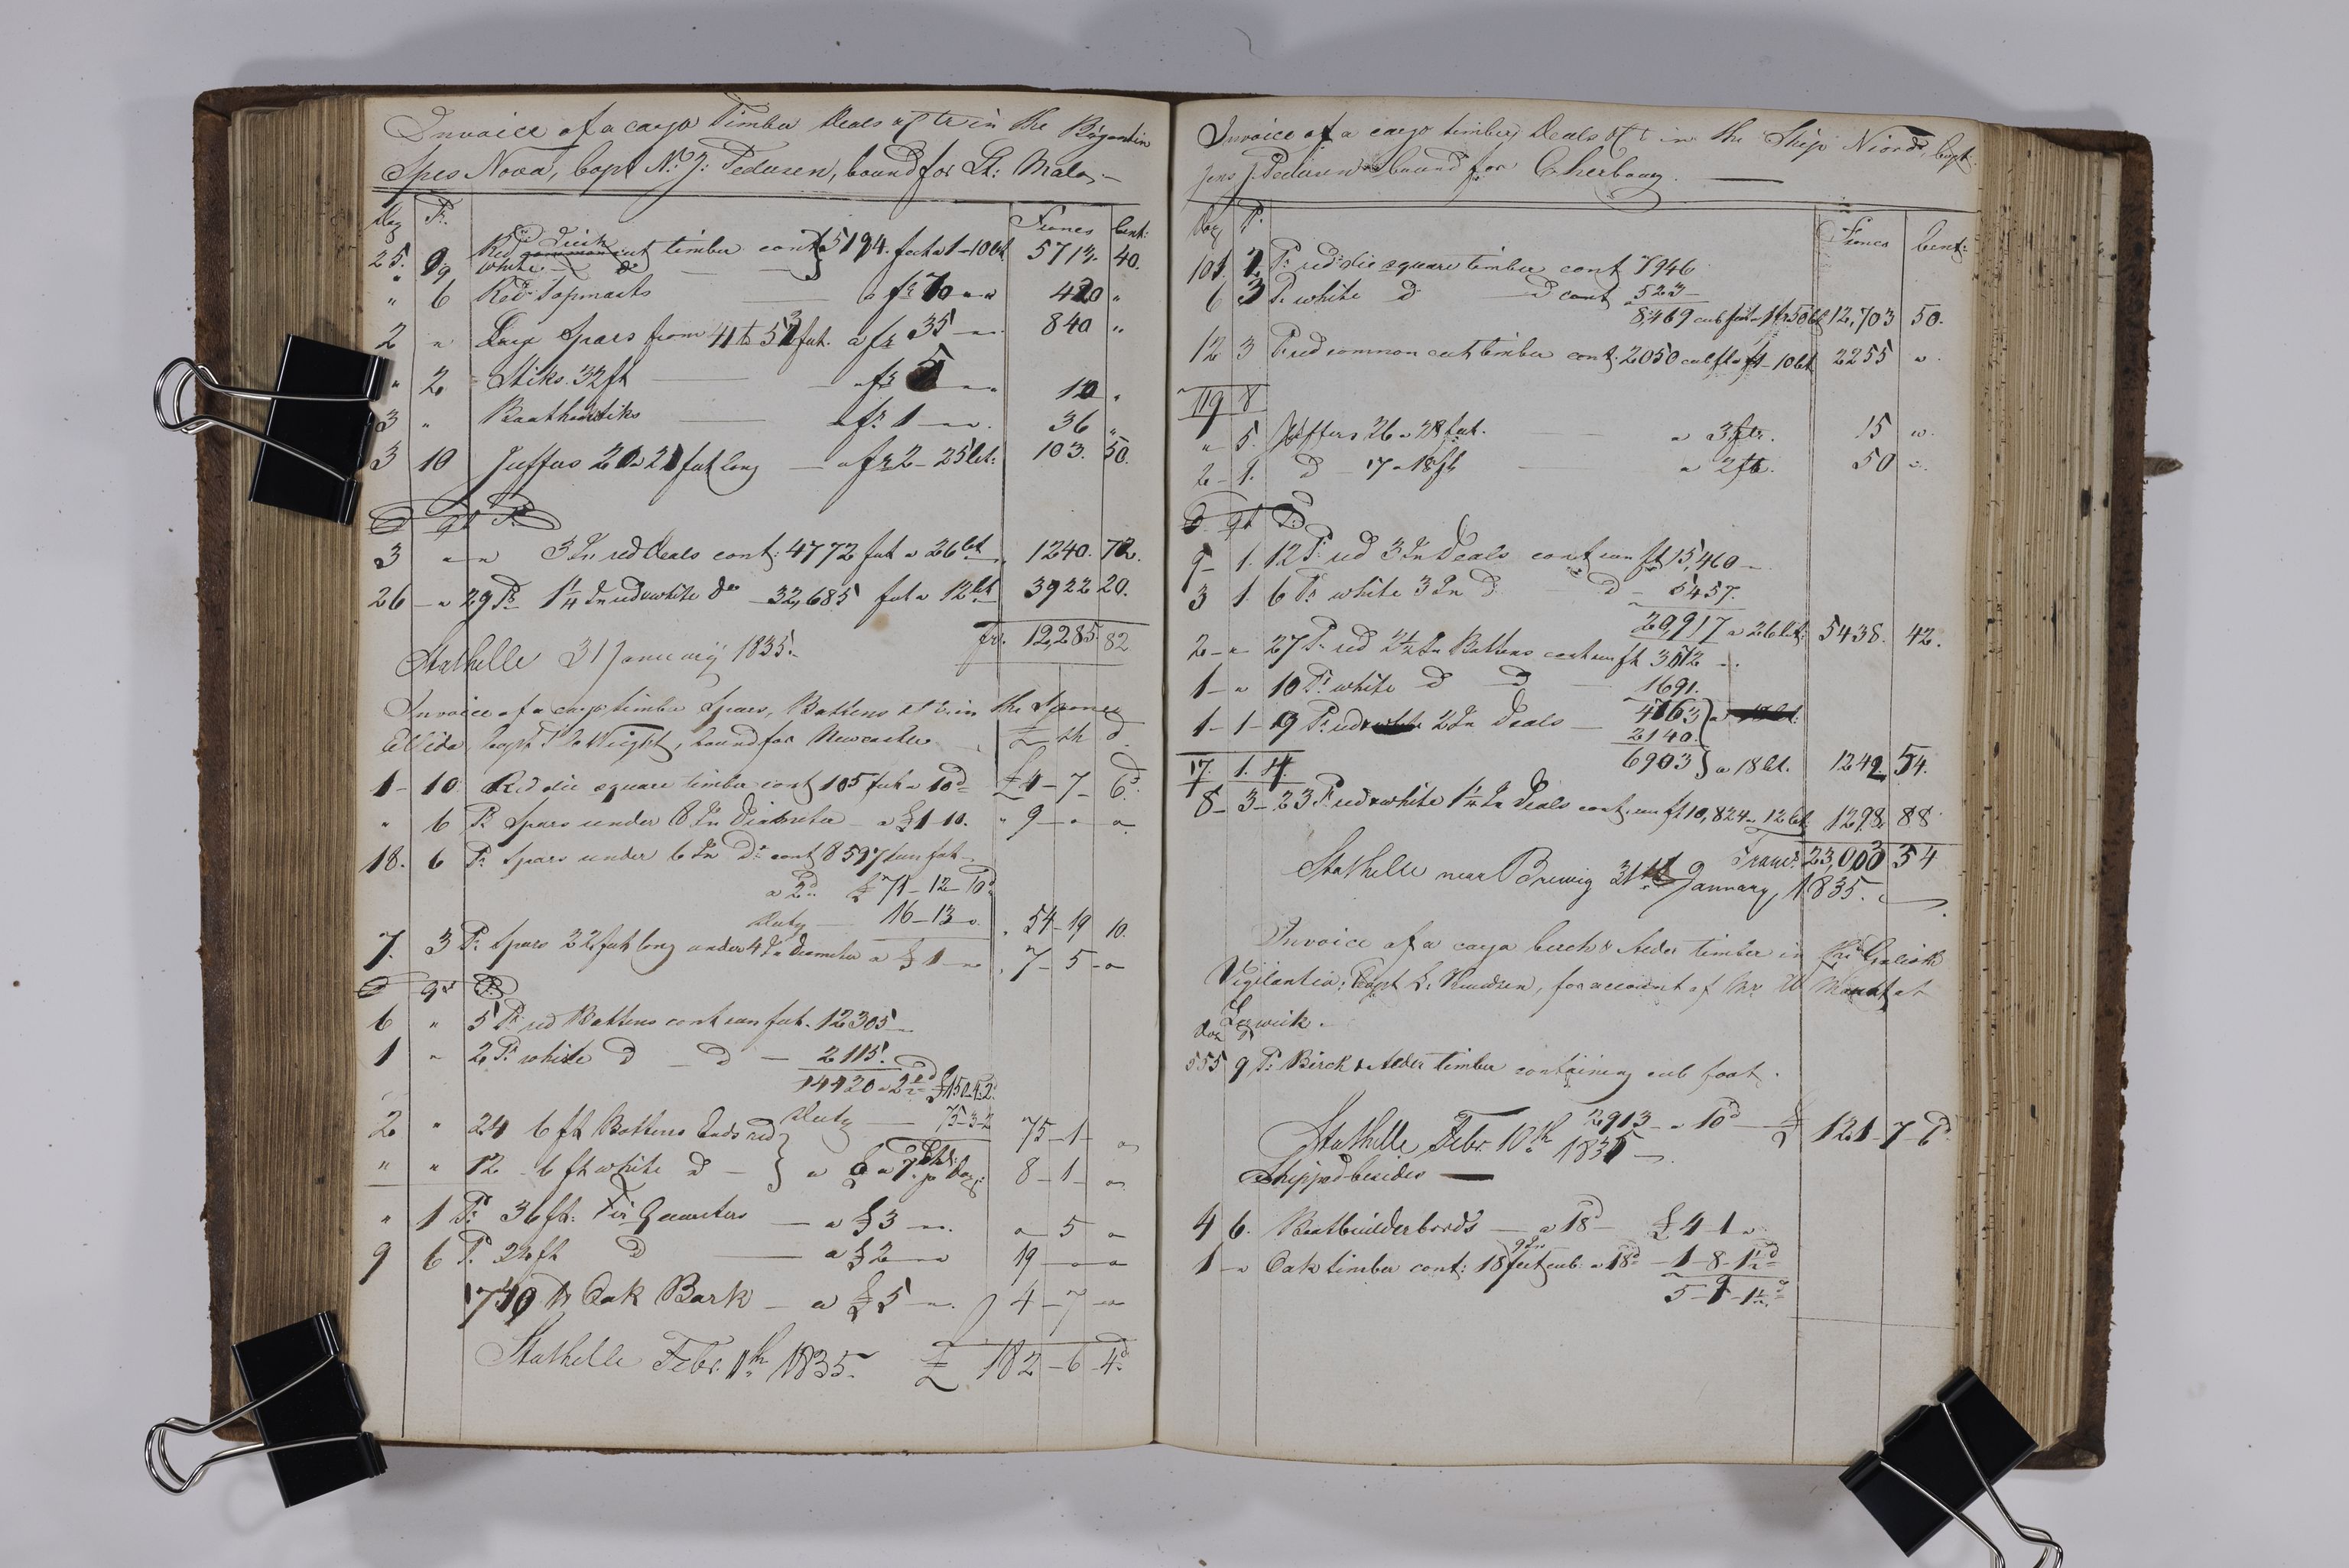 Invoice of a cargo Timber Deals &c &c in the Brigantin
Spes Nova, Capt N. J: Pedersen, bound for St: Malo,—
Doz Ps. Francs Cent:
25. 9 Red timber cont 5194. feet a 1-10Ct 5713. 40.
" 9 White do
" 6 Red Topmasts — a fr 70 " " 420 "
2 " Large Spars from 41 to 53 feet. a fr 35 — 840 "
" 2 Stiks. 32 ft — a fr 5 " " 10 "
3 " Baathoodstiks — a fr. 1 — 36 "
3 10 Juffers 20 a 21 feet long — a fr 2 - 25 Ct: 103. 50.
D qt Ps
3 " " 3 In red Deals cont: 4772 feet a 26 Ct 1240. 72.
26 — " 29 Ps 1¼ In red & white do — 32,685 feet a 12 Ct 3922 20.
frs. 12,285 82
Stathelle 31 January 1835.
Invoice of a cargo timber Spars, Battens &c &c in the
Elida, Capt Wright, bound for Newcastle £ sh d
1 - 10 Red die square timber cont 105 feet a 10d £4 - 7 - 6d
" 6 Ps Spars under 8 In Diameter — a £1-10. " 9 — " "
18. 6 Ps. Spars under 6 In Do cont 8597 run feet
a 2d £71 - 12 - 10d
Duty — 16 - 13 " 54 - 19 10.
7. 3 Ps. Spars 22 feet long under 4 In Diameter a £1 — " 7 - 5 - "
D qt Ps
6 " 5 Ps red Battens cont run feet. 12305
1 " 2 Ps white D — D — 2115.
14420 a 2½d £150-4-2
Duty — 75-3-2 75 - 1 - "
2 " 24 6 ft Battens Ends red
" " 12 - 6 ft white D — } a £ pr Doz: 8 - 1 - "
" 1 Ps 36 ft. Fir Quarters — a £3 — " 5 "
9 6 Ps. 24 ft D — a £2 — 19 — " "
1740 lb Oak Bark — a £5 — 4 - 7 - "
Stathelle Febr. 1th 1835. £ 182 - 6 - 4d
Invoice of a cargo timber, Deals &c &c in the Ship Niord, Capt
Jens J. Pedersen bound for Cherbourg. —
Doz Ps. Francs Cent:
101. 2 Ps. red die square timber cont 7946
6 3 Ps. white D — D cont 523 —
8,469 cub feet a 1 fr 50 Ct 12,703 50.
12 3 Ps red common cut timber cont. 2050 cub ft a fr 1 - 10 Ct 2255 "
119 8
" 5. Juffers 26 a 28 feet. — a 3 frs. 15 "
2 - 1. D — 17 a 18 ft — a 2 frs. 50 "
D qt Ps
9 - 1. 12 Ps red 3 In Deals cont run ft 15,460 —
3 1. 6 Ps white 3 In D — D — 5457.
20,917 a 26 Ct: 5438. 42.
2 - " 27 Ps red 2½ In Battens cont run ft 3072 —
1 - " 10 Ps white D — D — 1691.
4763
1 - 1 - 19 Ps red 2 In Deals — 2140.
6903 } a 18 Ct. 1242 54.
17. 1. 4.
8 - 3 - 23 Ps red & white 1¼ In Deals cont. run ft 10,824 a 12 Ct 1298. 88
Francs 23,003 54
Stathelle near Brewig 31st January 1835.
Invoice of a cargo birch & Alder timber in the
Vigilantia, Capt L. Knudsen, for account of Mr W Mouat at
Lerwick.
doz Ps
555 9 Ps. Birck & Alder timber containing cub foot.
2913 — a 10d — £ 121 - 7 - 6d
Stathelle Febr. 10th 1835 —
Shipped besides —
4 6. Boatbuilderbords — a 18d — £4 1 "
1 - " Oak timber cont: 18 feet 9 In cub. a 18d — 1 - 8 - 1½d
5 - 9 - 1½d